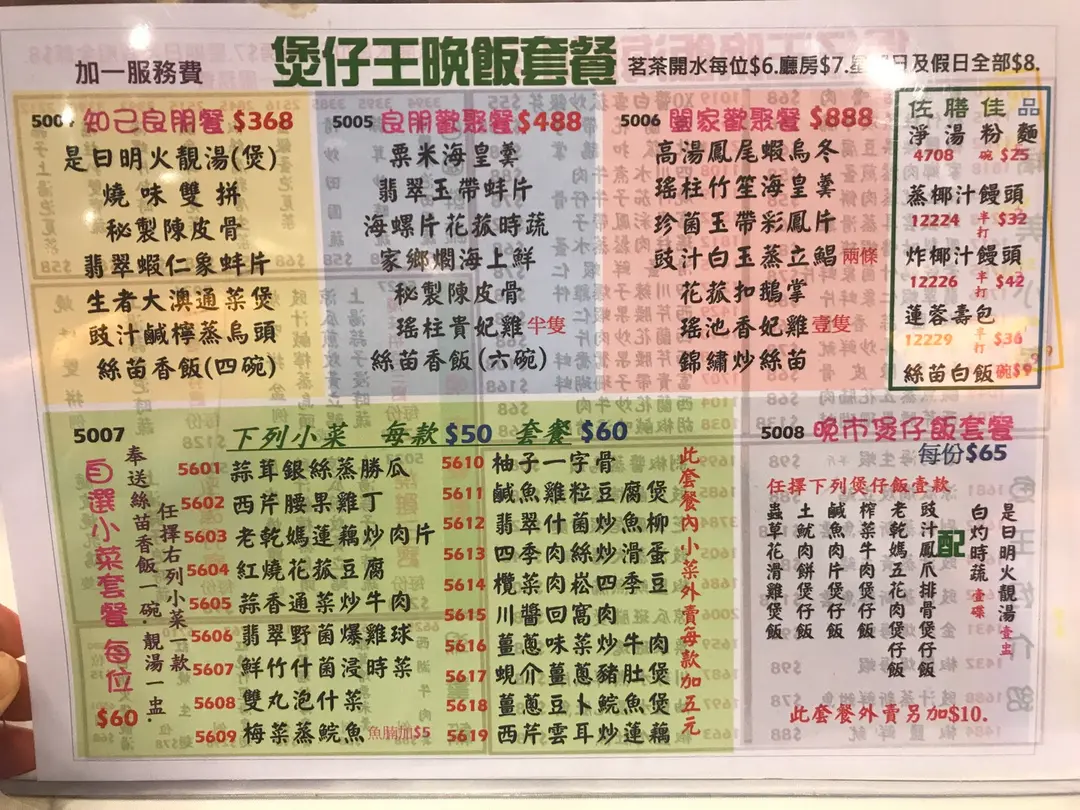 加一服務費
煲仔王晚飯套餐
茗茶開水每位$6.廳房$7.星期日及假日全部$8.
5004 知己良朋餐 $368
是日明火靚湯(煲)
燒味雙拼
秘製陳皮骨
翡翠蝦仁象蚌片
生者大澳通菜煲
豉汁鹹檸蒸烏頭
絲苗香飯(四碗)
5005 良朋歡聚餐 $488
粟米海皇羹
翡翠玉帶蚌片
海螺片花菰時蔬
家鄉燜海上鮮
秘製陳皮骨
瑤柱貴妃雞半隻
絲苗香飯(六碗)
5006 闔家歡聚餐 $888
高湯鳳尾蝦烏冬
瑤柱竹笙海皇羹
珍菌玉帶彩鳳片
豉汁白玉蒸立鯧 兩條
花菰扣鵝掌
瑤池香妃雞壹隻
錦繡炒絲苗
佐膳佳品
淨湯粉麵
4708 碗 $25
蒸椰汁饅頭
12224 半打 $32
炸椰汁饅頭
12226 半打 $42
蓮蓉壽包
12229 半打 $36
絲苗白飯 碗$9
5007
下列小菜 每款 $50 套餐 $60
自選小菜套餐 每位
$60
奉送絲苗香飯一碗.靚湯一盅.
任擇右列小菜一款
5601 蒜茸銀絲蒸勝瓜
5602 西芹腰果雞丁
5603 老乾媽蓮藕炒肉片
5604 紅燒花菰豆腐
5605 蒜香通菜炒牛肉
5606 翡翠野菌爆雞球
5607 鮮竹什菌浸時菜
5608 雙丸泡什菜
5609 梅菜蒸鯇魚 魚腩加$5
5610 柚子一字骨
5611 鹹魚雞粒豆腐煲
5612 翡翠什菌炒魚柳
5613 四季肉絲炒滑蛋
5614 欖菜肉崧四季豆
5615 川醬回窩肉
5616 薑蔥味菜炒牛肉
5617 蜆介薑蔥豬肚煲
5618 薑蔥豆卜鯇魚煲
5619 西芹雲耳炒蓮藕
此套餐內小菜外賣每款加五元
5008 晚市煲仔飯套餐
每份$65
任擇下列煲仔飯壹款
豉汁鳳爪排骨煲仔飯
老乾媽五花肉煲仔飯
榨菜牛肉煲仔飯
鹹魚肉片煲仔飯
土魷肉餅煲仔飯
蟲草花滑雞煲飯
配
是日明火靚湯 壹盅
白灼時蔬 壹碟
此套餐外賣另加$10.